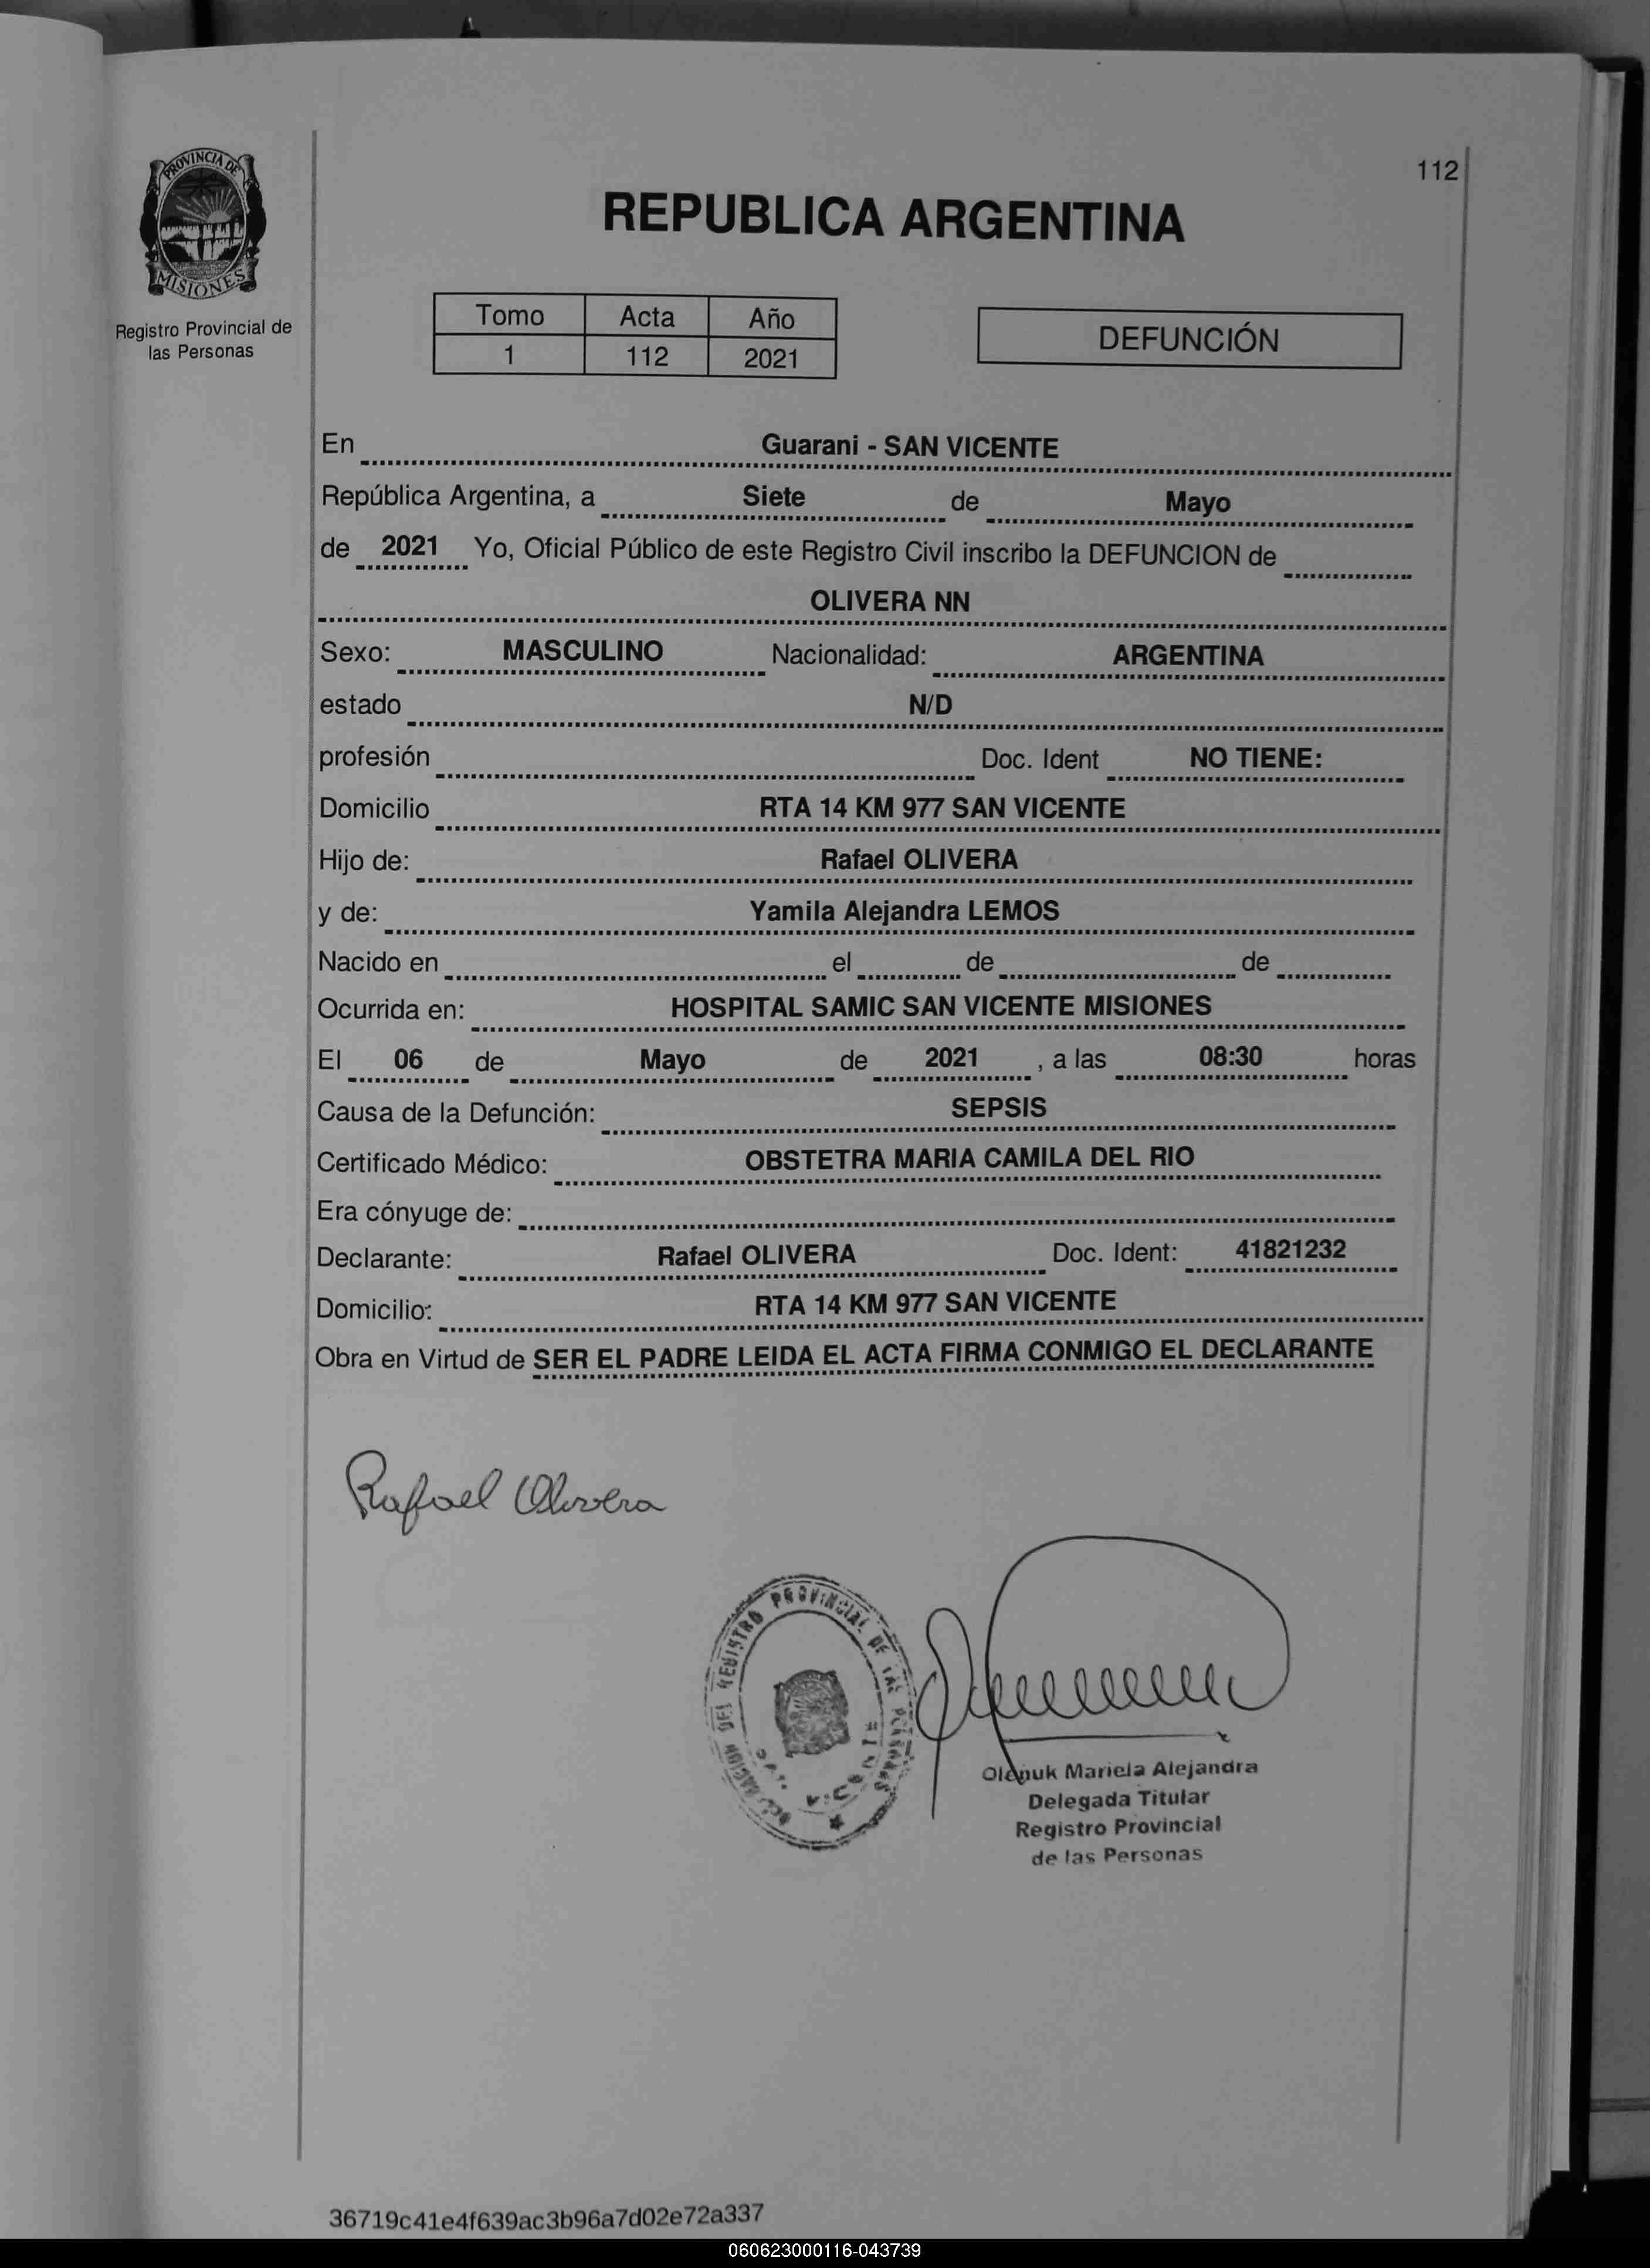 112
PROVINCIA DE
MISIONES
Registro Provincial de
las Personas
REPUBLICA ARGENTINA
Tomo Acta Año
1 112 2021
DEFUNCIÓN
En Guarani - SAN VICENTE
República Argentina, a Siete de Mayo
de 2021 Yo, Oficial Público de este Registro Civil inscribo la DEFUNCION de
OLIVERA NN
Sexo: MASCULINO Nacionalidad: ARGENTINA
estado N/D
profesión Doc. Ident NO TIENE:
Domicilio RTA 14 KM 977 SAN VICENTE
Hijo de: Rafael OLIVERA
y de: Yamila Alejandra LEMOS
Nacido en el de de
Ocurrida en: HOSPITAL SAMIC SAN VICENTE MISIONES
El 06 de Mayo de 2021 , a las 08:30 horas
Causa de la Defunción: SEPSIS
Certificado Médico: OBSTETRA MARIA CAMILA DEL RIO
Era cónyuge de:
Declarante: Rafael OLIVERA Doc. Ident: 41821232
Domicilio: RTA 14 KM 977 SAN VICENTE
Obra en Virtud de SER EL PADRE LEIDA EL ACTA FIRMA CONMIGO EL DECLARANTE
Rafael Olivera
DEL REGISTRO PROVINCIAL DE LAS PERSONAS
Olenuk Mariela Alejandra
Delegada Titular
Registro Provincial
de las Personas
36719c41e4f639ac3b96a7d02e72a337
060623000116-043739